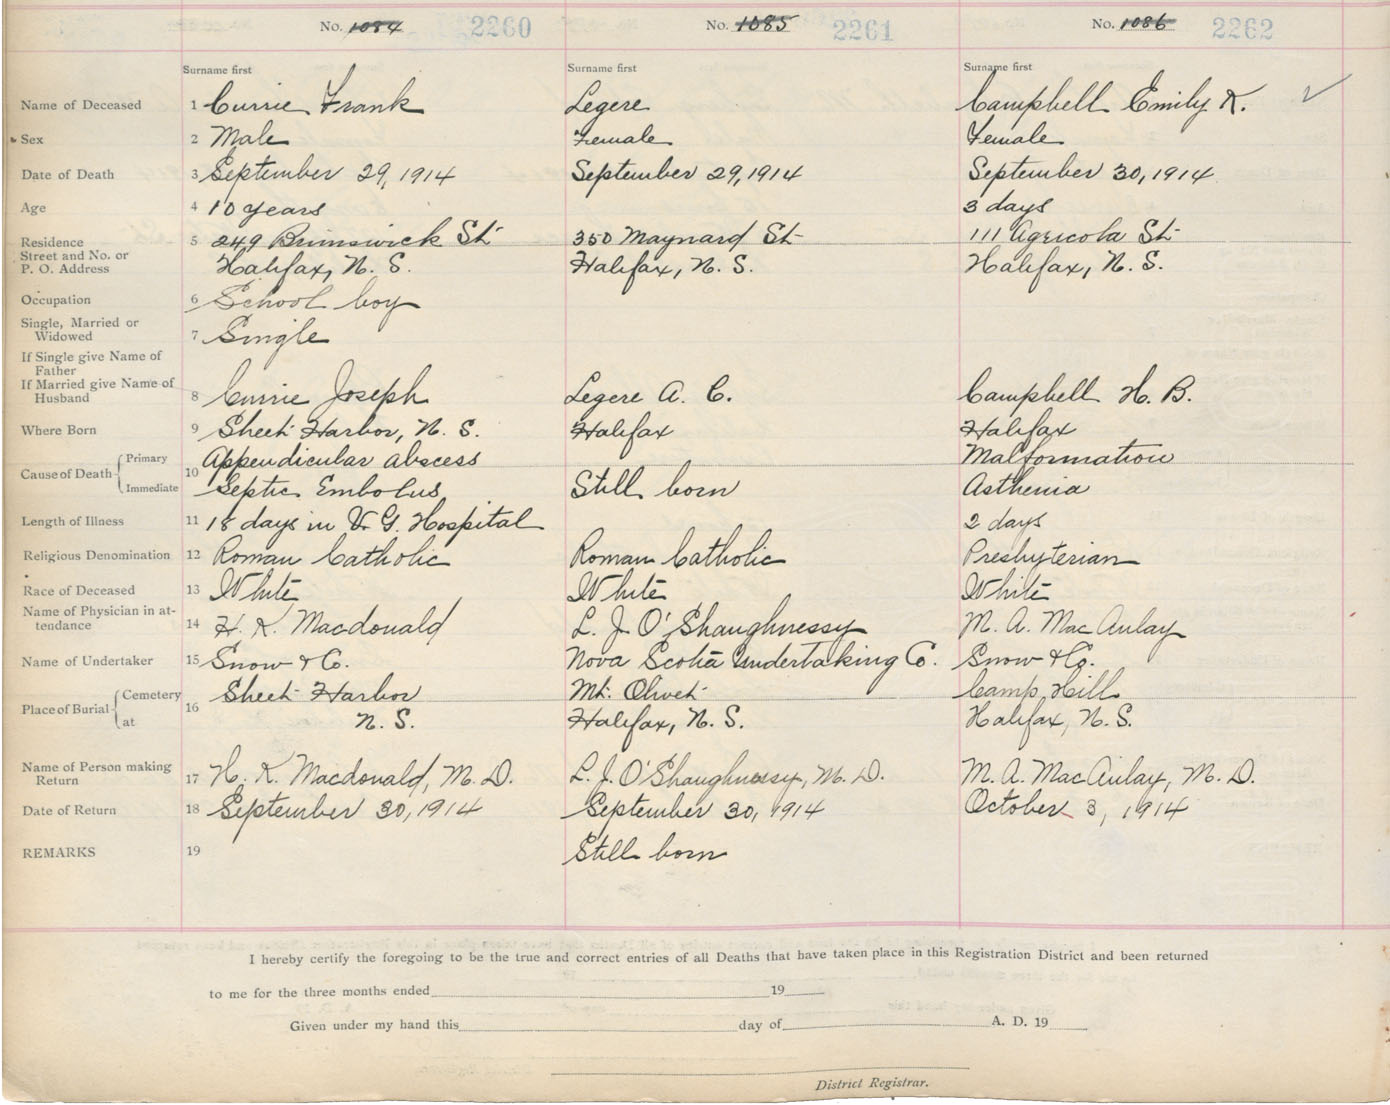 No. 1084 2260 No. 1085 2261 No. 1086 2262
Surname first Surname first Surname first
Name of Deceased 1 Currie Frank Legere Campbell Emily K.
Sex 2 Male Female Female
Date of Death 3 September 29, 1914 September 29, 1914 September 30, 1914
Age 4 10 years 3 days
Residence 5 249 Brunswick St 350 Maynard St 111 Agricola St
Street and No. or
P. O. Address Halifax, N. S. Halifax, N. S. Halifax, N. S.
Occupation 6 School boy
Single, Married or
Widowed 7 Single
If Single give Name of
Father
If Married give Name of
Husband 8 Currie Joseph Legere A. C. Campbell H. B.
Where Born 9 Sheet Harbor, N. S. Halifax Halifax
Primary Appendicular abscess Malformation
Cause of Death 10
Immediate Septic Embolus Still born Asthenia
Length of Illness 11 18 days in V. G. Hospital 2 days
Religious Denomination 12 Roman Catholic Roman Catholic Presbyterian
Race of Deceased 13 White White White
Name of Physician in at-
tendance 14 H. K. Macdonald L. J. O'Shaughnessy M. A. MacAulay
Name of Undertaker 15 Snow & Co. Nova Scotia Undertaking Co. Snow & Co.
Cemetery Sheet Harbor Mt. Olivet Camp Hill
Place of Burial 16
at N. S. Halifax, N. S. Halifax, N. S.
Name of Person making
Return 17 H. K. Macdonald, M. D. L. J. O'Shaughnessy, M. D. M. A. MacAulay, M. D.
Date of Return 18 September 30, 1914 September 30, 1914 October 3, 1914
REMARKS 19 Still born
I hereby certify the foregoing to be the true and correct entries of all Deaths that have taken place in this Registration District and been returned
to me for the three months ended 19
Given under my hand this day of A. D. 19
District Registrar.